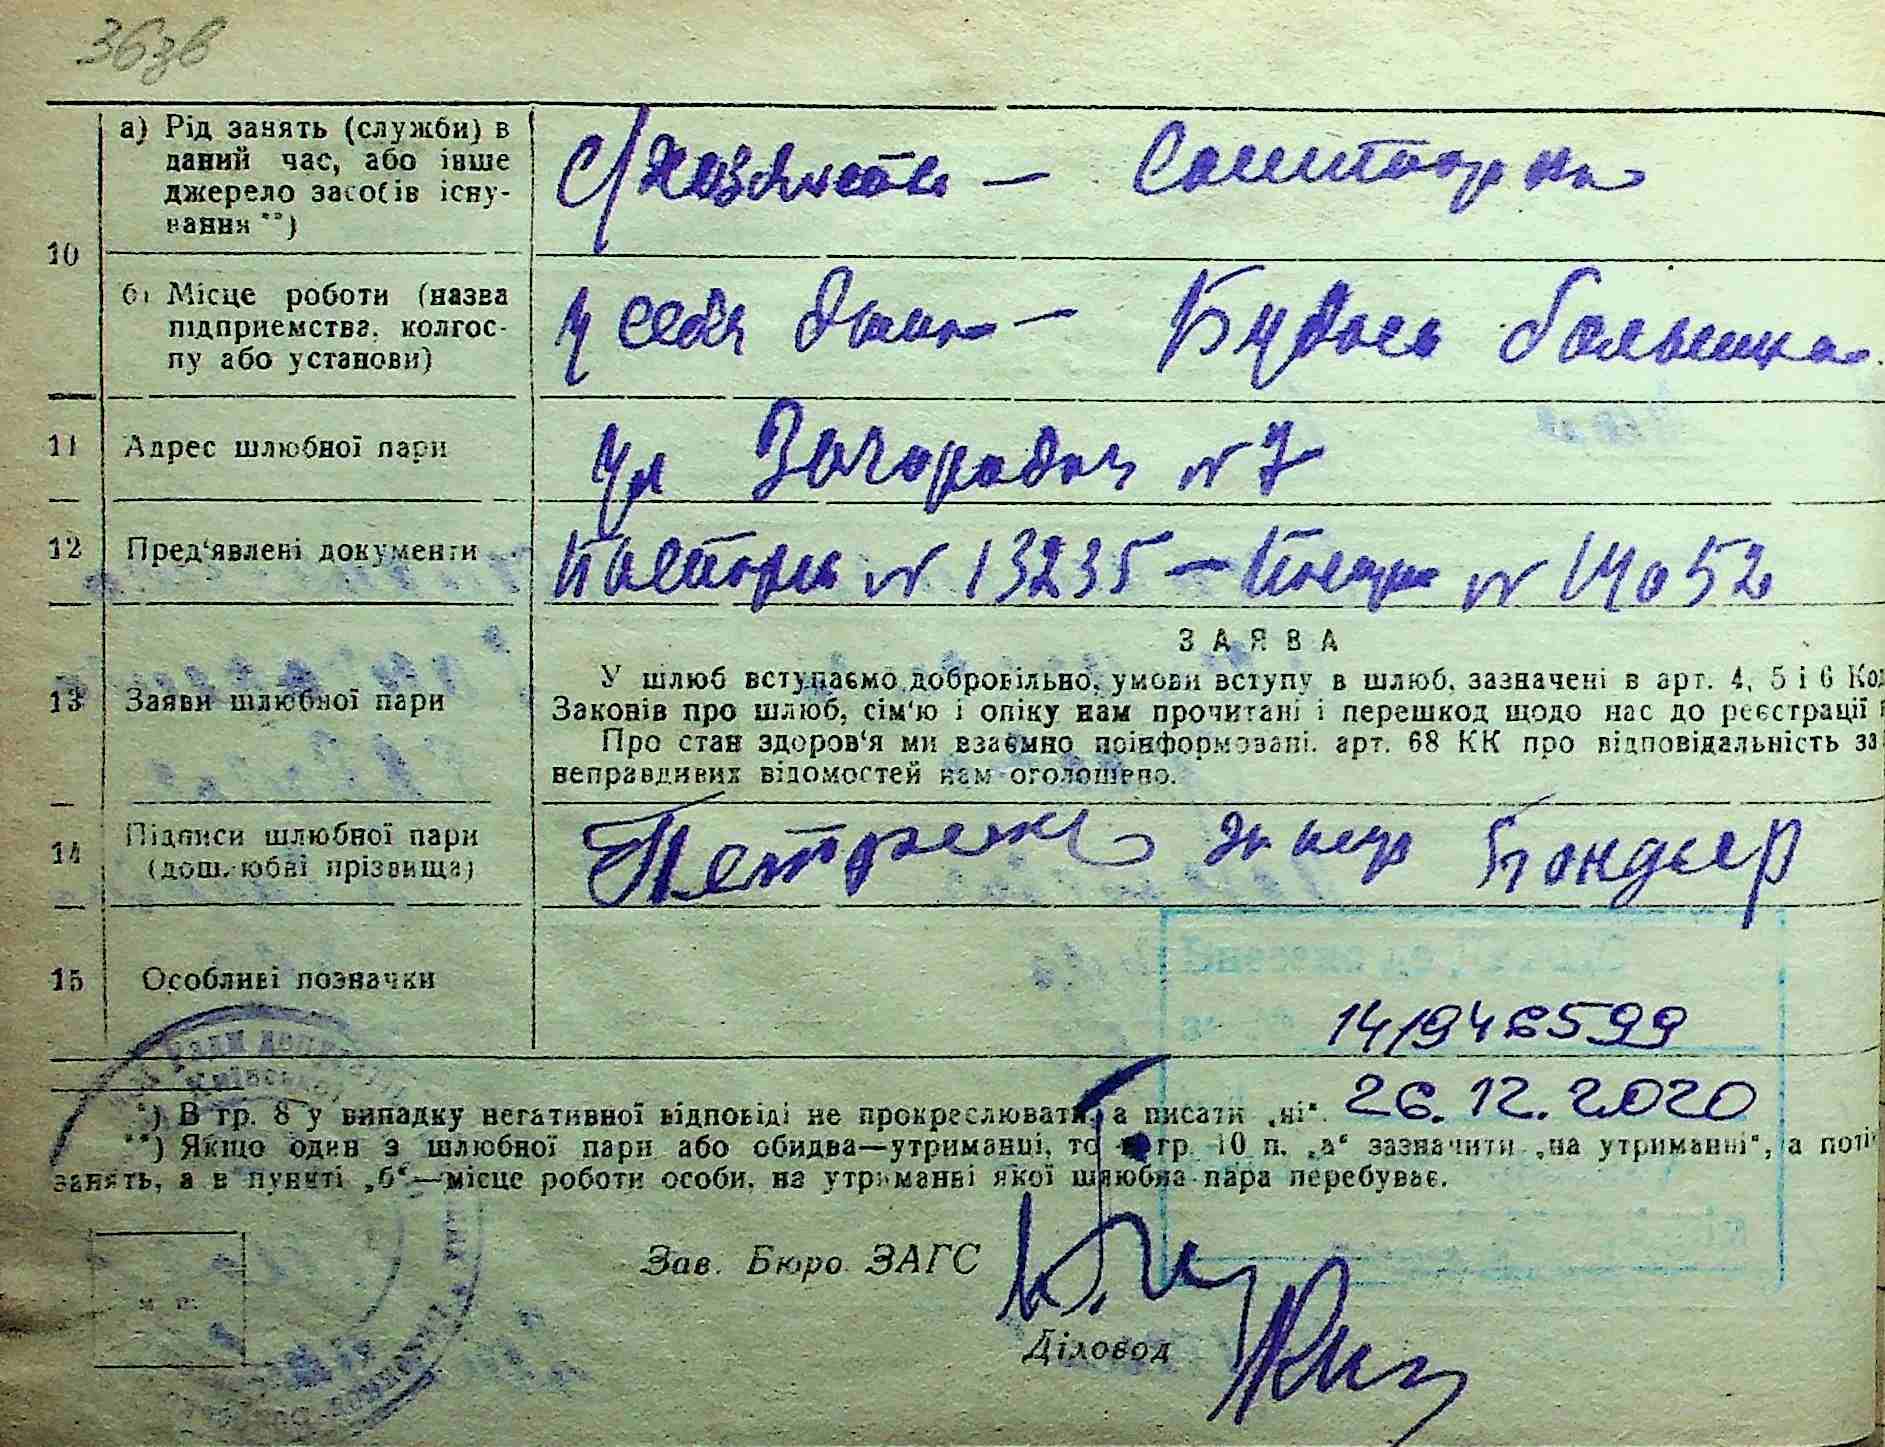 36зв
10
а) Рід занять (служби) в
даний час, або інше
джерело засобів існу-
вання **)
с/хозяйство — санитарка
б) Місце роботи (назва
підприємства, колгос-
пу або установи)
у себя дома — больница
11 Адрес шлюбної пари
ул Загородня №7
12 Пред'явлені документи
Паспорт № 13235 — № 14052
13 Заяви шлюбної пари
ЗАЯВА
У шлюб вступаємо добровільно, умови вступу в шлюб, зазначені в арт. 4, 5 і 6 Код
Законів про шлюб, сім'ю і опіку нам прочитані і перешкод щодо нас до реєстрації
Про стан здоров'я ми взаємно поінформовані, арт. 68 КК про відповідальність за
неправдивих відомостей нам оголошено.
14 Підписи шлюбної пари
(дошлюбні прізвища)
Бондар
15 Особливі позначки
Внесено до
14/946599
26.12.2020
*) В гр. 8 у випадку негативної відповіді не прокреслювати, а писати „ні“.
**) Якщо один з шлюбної пари або обидва—утриманці, то гр. 10 п. „а“ зазначити „на утриманні“, а поті
занять, а в пункті „б“—місце роботи особи, на утриманні якої шлюбна пара перебуває.
Зав. Бюро ЗАГС
Діловод
м. п.